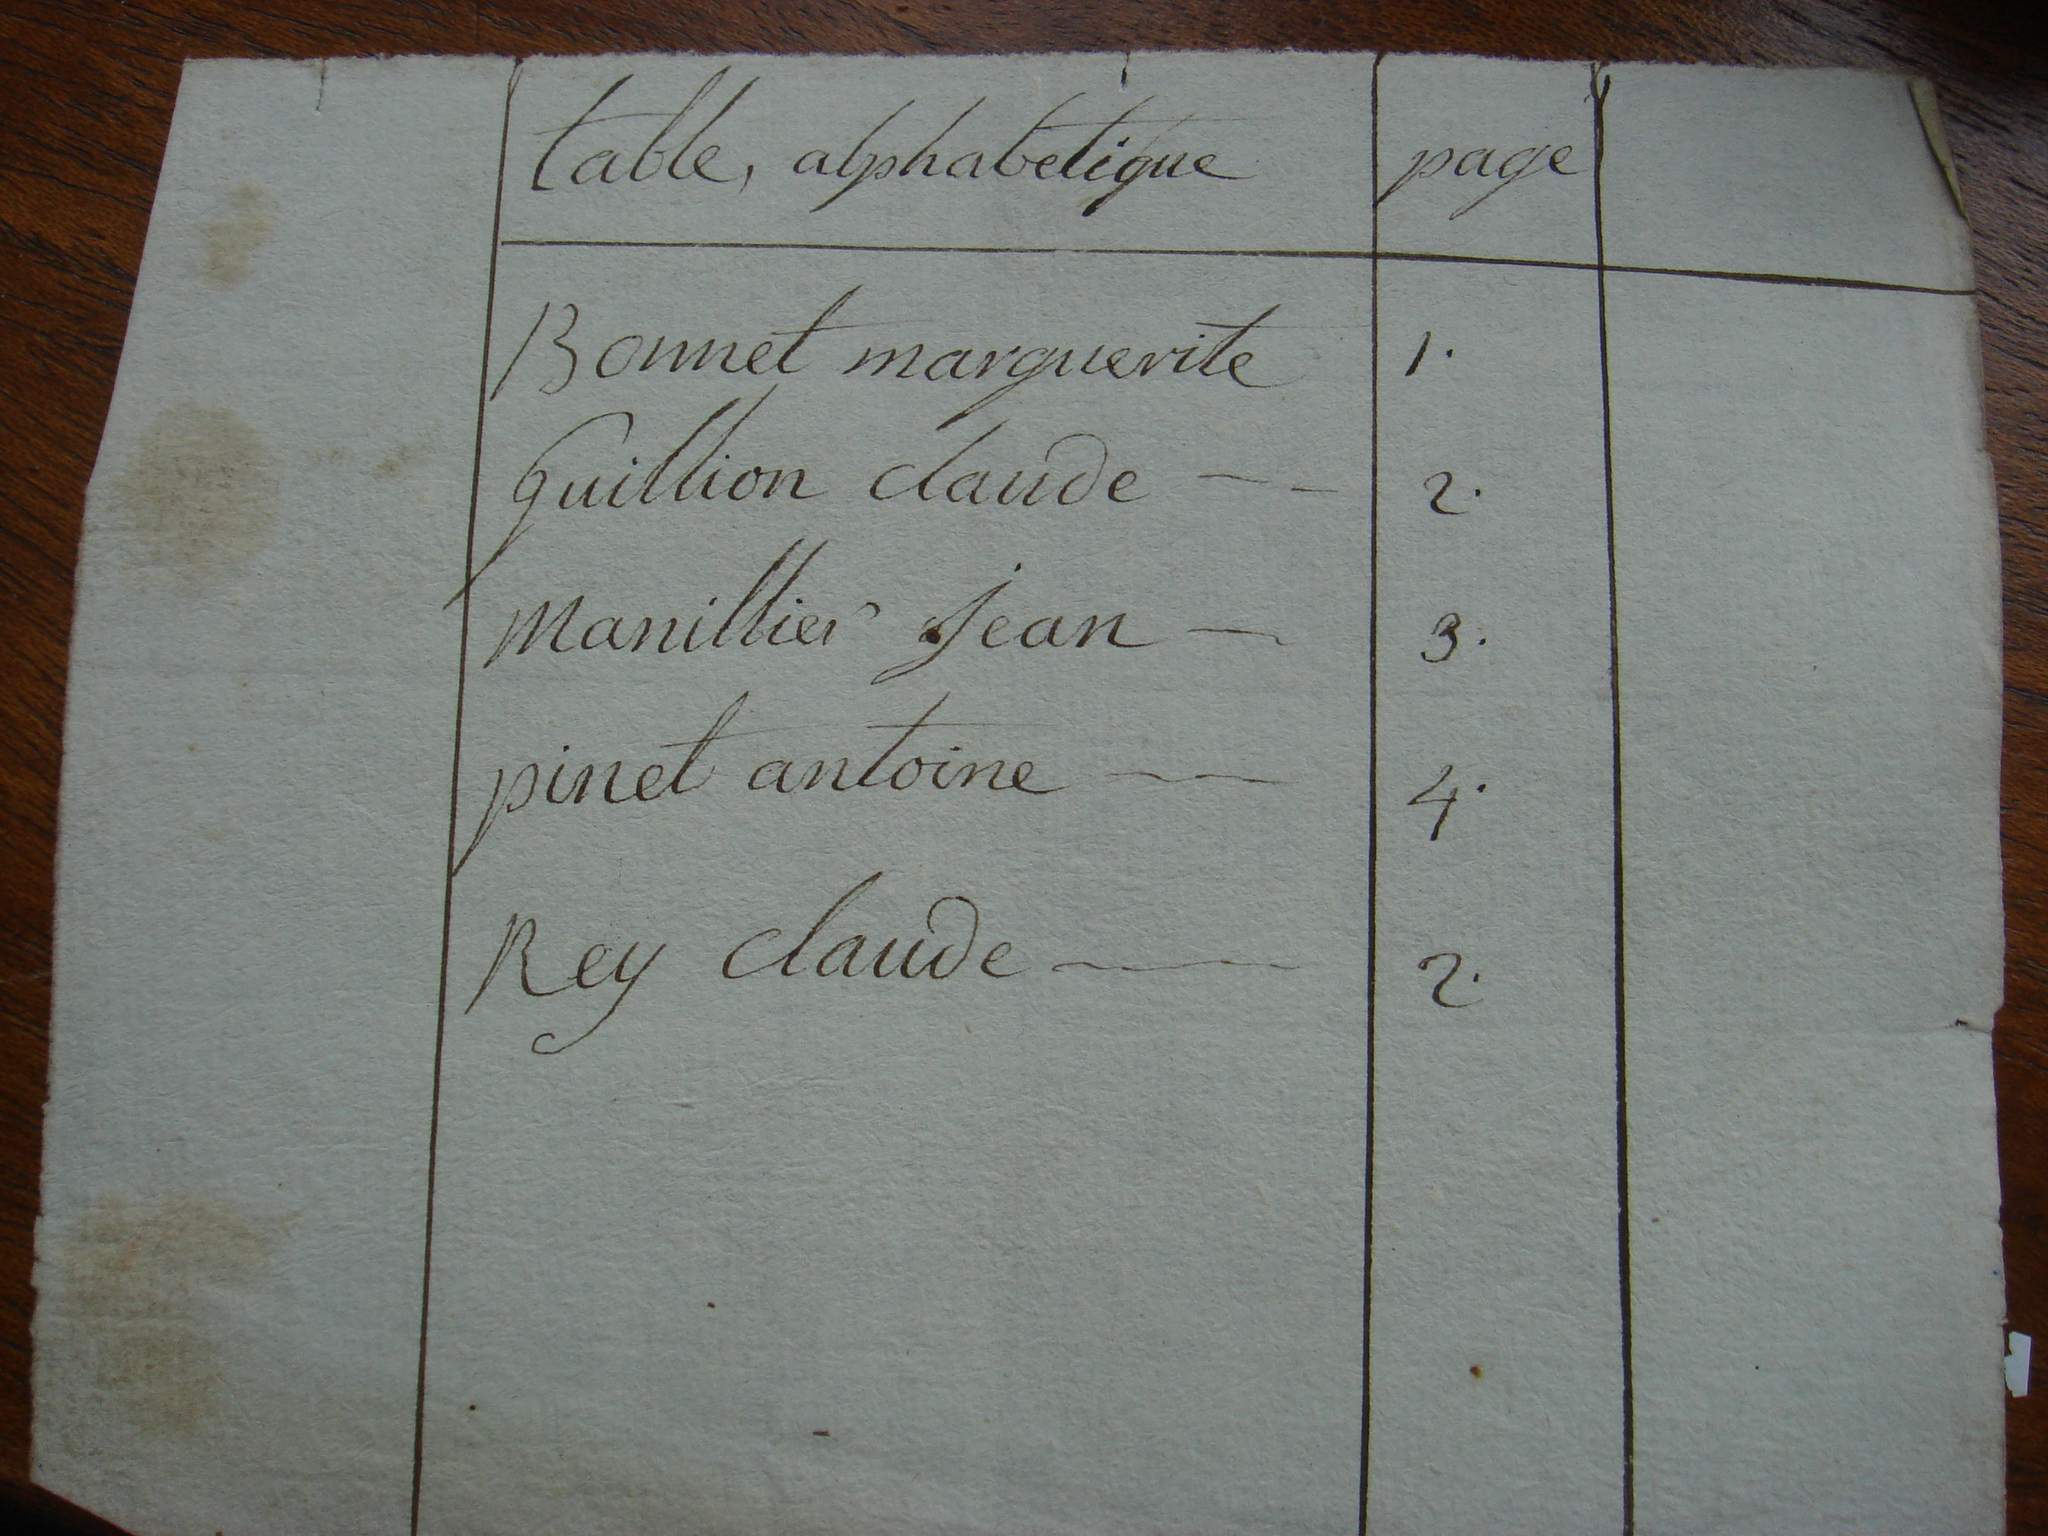 table, alphabetique page
Bonnet marguerite 1.
Guillion claude -- 2.
Manillier jean - 3.
pinet antoine -- 4.
Rey claude -- 2.